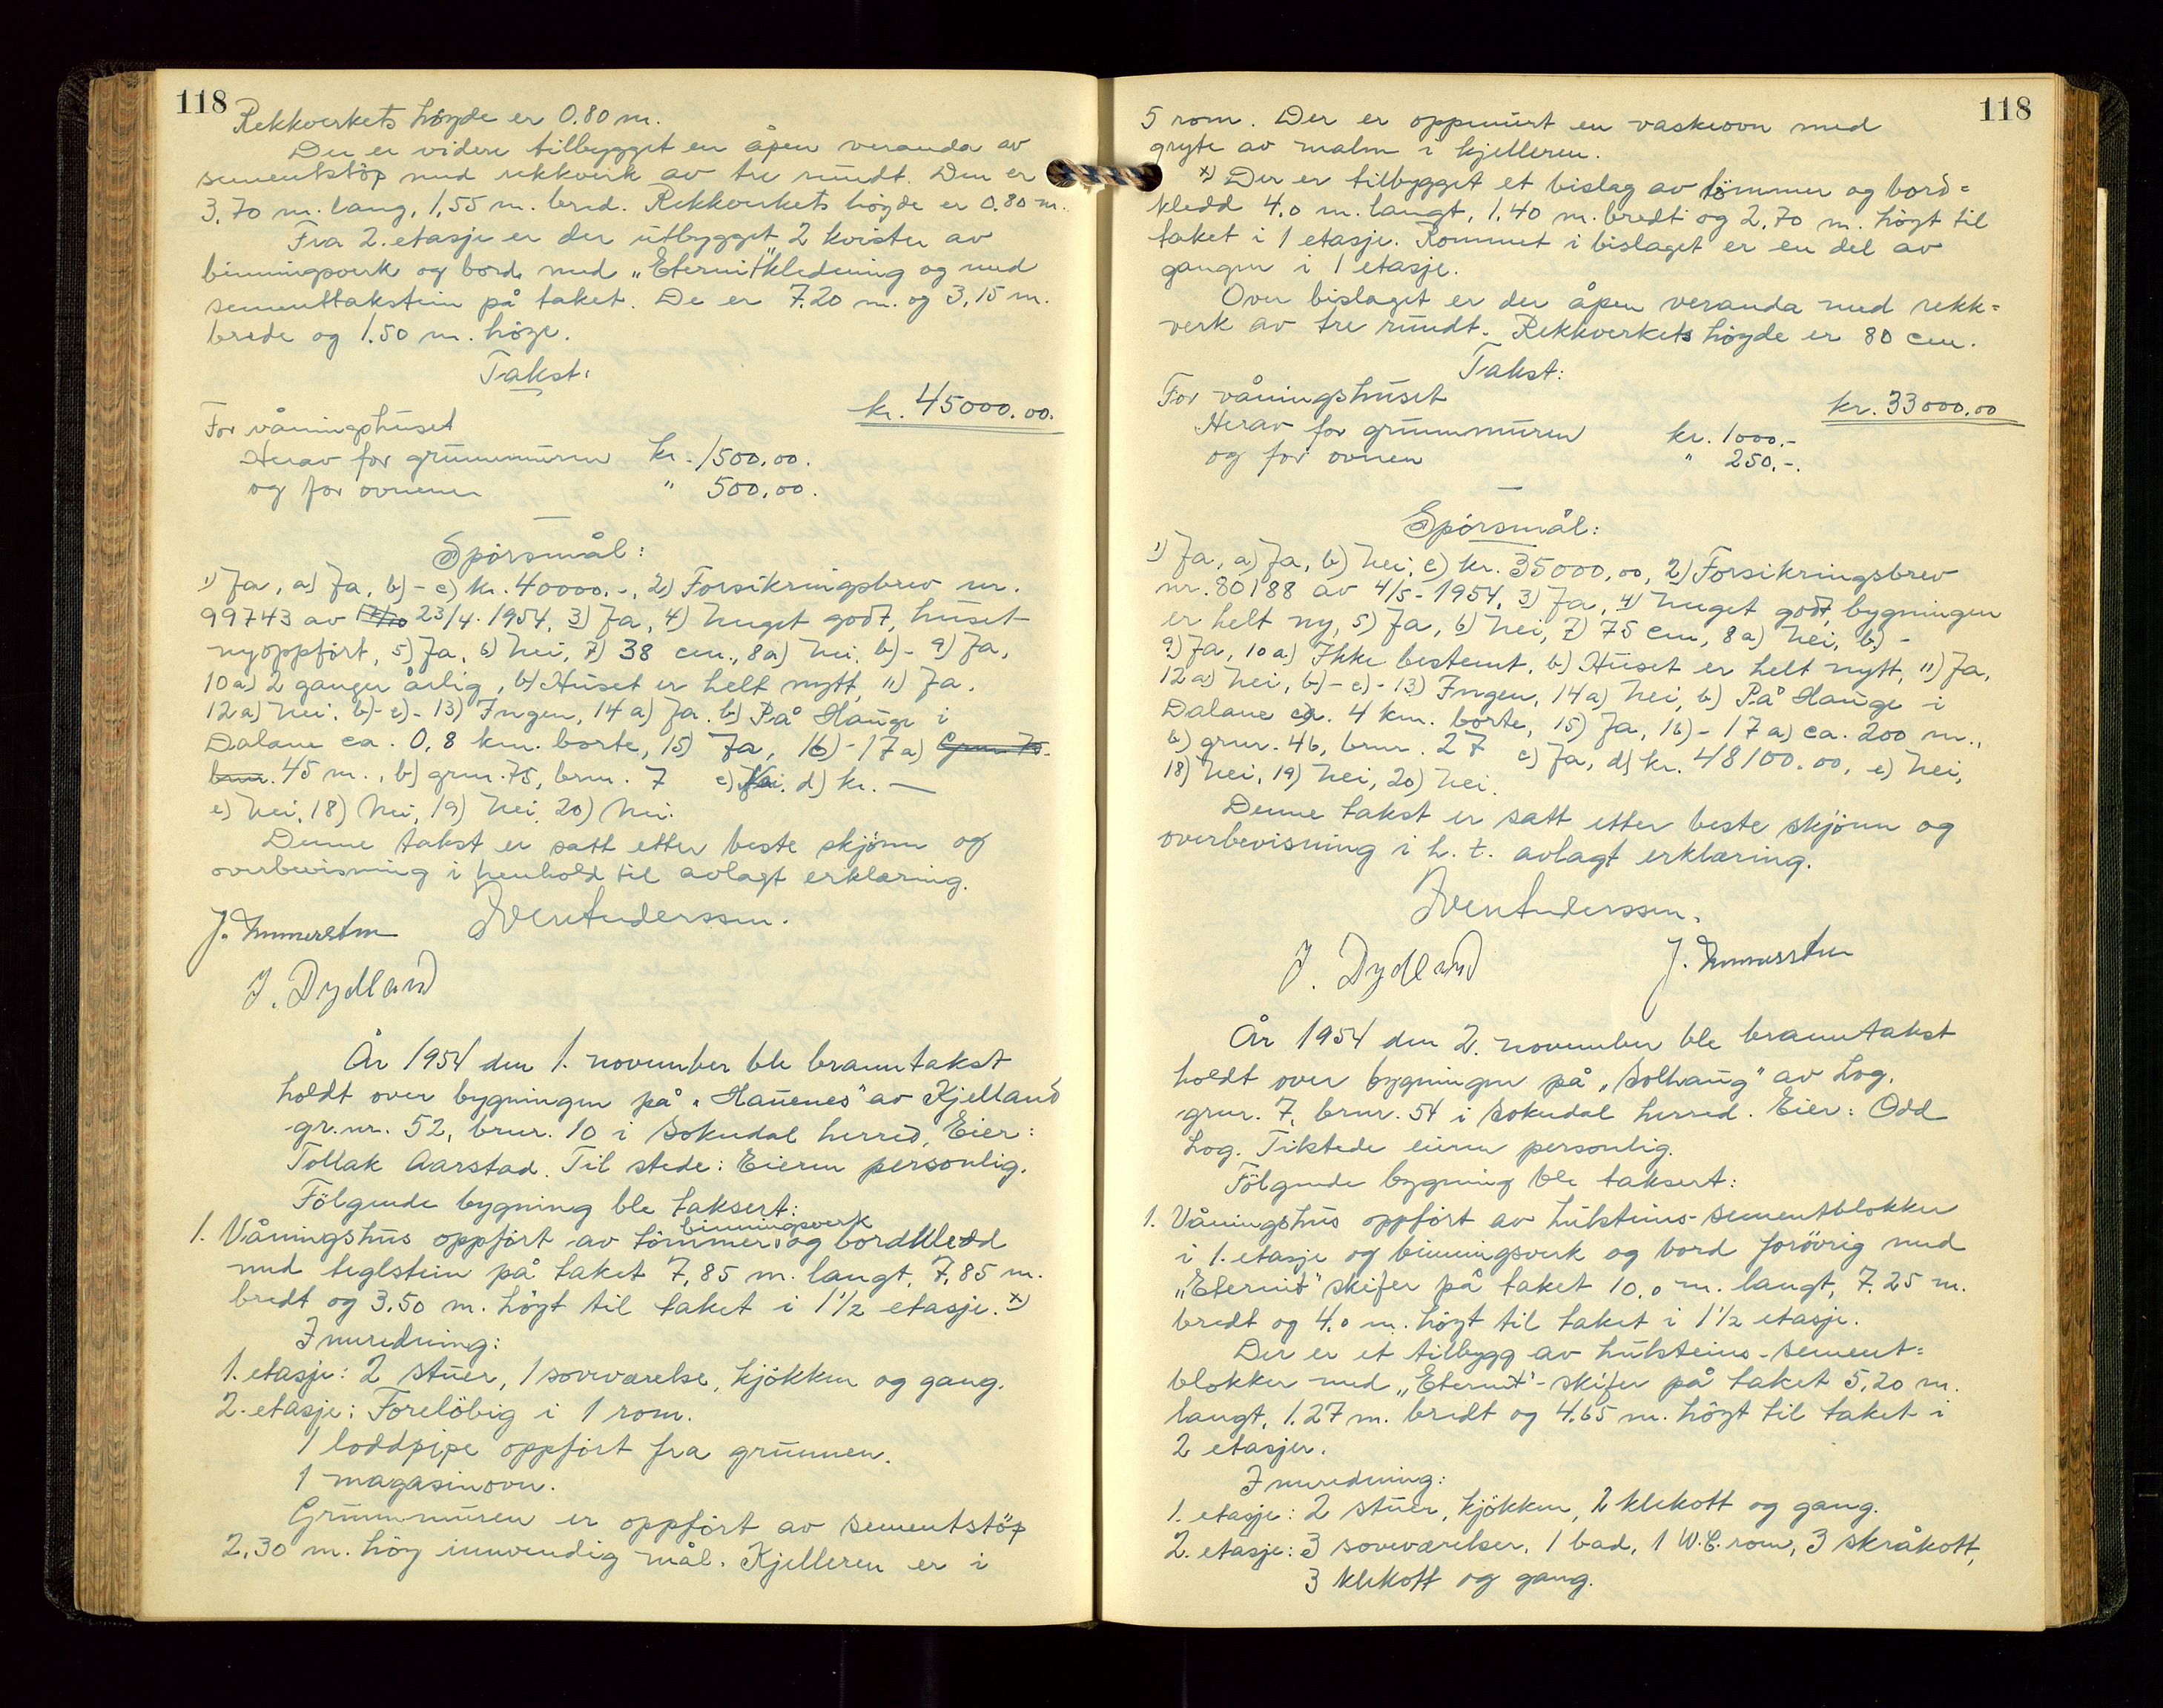 118
Rekkverkets höyde er 0.80 m.
Der er videre tilbygget en åpen veranda av
sementstöp med rekkverk av tre rundt. Den er
3,70 m. lang, 1,55 m. bred. Rekkverkets höyde er 0.80 m.
Fra 2. etasje er der utbygget 2 kvister av
binningsverk og bord med „Eternit" kledning og med
sementtakstein på taket. De er 7.20 m. og 3,15 m.
brede og 1.50 m. höge.
Takst:
For våningshuset kr. 45000.00.
Herav for grunnmuren kr. 1500.00.
og for ovnene " 500.00.
Spörsmål:
1) Ja, a) Ja, b) - c) kr. 40000.-, 2) Forsikringsbrev nr.
99743 av 23/4. 1954, 3) Ja, 4) Meget godt, huset
nyoppfört, 5) Ja, 6) Nei, 7) 38 cm., 8a) Nei, b) - 9) Ja,
10a) 2 ganger årlig, b) Huset er helt nytt, 11) Ja.
12a) Nei, b) - c) - 13) Ingen, 14a) Ja. b) På Hauge i
Dalane ca. 0,8 km. borte, 15) Ja, 16) - 17a) Grnr. 75.
brnr. 45 m., b) grnr. 75, brnr. 7 c) Nei. d) kr. —
e) Nei, 18) Nei, 19) Nei, 20) Nei.
Denne takst er satt etter beste skjönn og
overbevisning i henhold til avlagt erklæring.
Sven Anderssen.
J. Dydland
År 1954 den 1. november ble branntakst
holdt over bygningen på „Hauenes" av Kjelland
gr.nr. 52, brnr. 10 i Sokndal herred, Eier:
Tollak Aarstad. Til stede: Eieren personlig.
Fölgende bygning ble taksert:
binningsverk
1. Våningshus oppfört av tömmer og bordkledd
med teglstein på taket 7,85 m. langt, 7,85 m.
bredt og 3.50 m. högt til taket i 1 1/2 etasje. x)
Innredning:
1. etasje: 2 stuer, 1 soveværelse, kjökken og gang.
2. etasje: Forelöbig i 1 rom.
1 loddpipe oppfört fra grunnen.
1 magasinovn.
Grunnmuren er oppfört av sementstöp
2,30 m. höy innvendig mål. Kjelleren er i
118
5 rom. Der er oppmurt en vaskeovn med
gryte av malm i kjelleren.
x) Der er tilbygget et bislag av tömmer og bord=
kledd 4,0 m. langt, 1,40 m. bredt og 2,70 m. högt til
taket i 1 etasje. Rommet i bislaget er en del av
gangen i 1 etasje.
Over bislaget er der åpen veranda med rekk=
verk av tre rundt. Rekkverkets höyde er 80 cm.
Takst:
For våningshuset kr. 33000,00
Herav for grunnmuren kr. 1000.-
og for ovnen " 250.-.
Spörsmål:
1) Ja, a) Ja, b) Nei, c) kr. 35000,00, 2) Forsikringsbrev
nr. 80188 av 4/5 - 1954, 3) Ja, 4) Meget godt, bygningen
er helt ny, 5) Ja, 6) Nei, 7) 75 cm, 8a) Nei, b) -
9) Ja, 10a) Ikke bestemt, b) Huset er helt nytt, 11) Ja,
12a) Nei, b) - c) - 13) Ingen, 14a) Nei, b) På Hauge i
Dalane ca. 4 km. borte, 15) Ja, 16) - 17a) ca. 200 m.,
b) grnr. 46, brnr. 27 c) Ja, d) kr. 48100.00, e) Nei,
18) Nei, 19) Nei, 20) Nei.
Denne takst er satt etter beste skjönn og
overbevisning i h. t. avlagt erklæring.
Sven Anderssen.
J. Dydland
År 1954 den 2. november ble branntakst
holdt over bygningen på „Solhaug" av Log,
grnr. 7, brnr. 54 i Sokndal herred. Eier: Odd
Log. Tilstede eieren personlig.
Fölgende bygning ble taksert:
1. Våningshus oppfört av hulsteins-sementblokker
i 1. etasje og binningsverk og bord forövrig med
„Eternit" skifer på taket 10,0 m. langt, 7.25 m.
bredt og 4,0 m. högt til taket i 1 1/2 etasje.
Der er et tilbygg av hulsteins-sement=
blokker med „Eternit"-skifer på taket 5,20 m.
langt, 1.27 m. bredt og 4,65 m. högt til taket i
2 etasjer.
Innredning:
1. etasje: 2 stuer, kjökken, 2 klekott og gang.
2. etasje: 3 soveværelser, 1 bad, 1 W.C. rom, 3 skråkott,
3 klekott og gang.